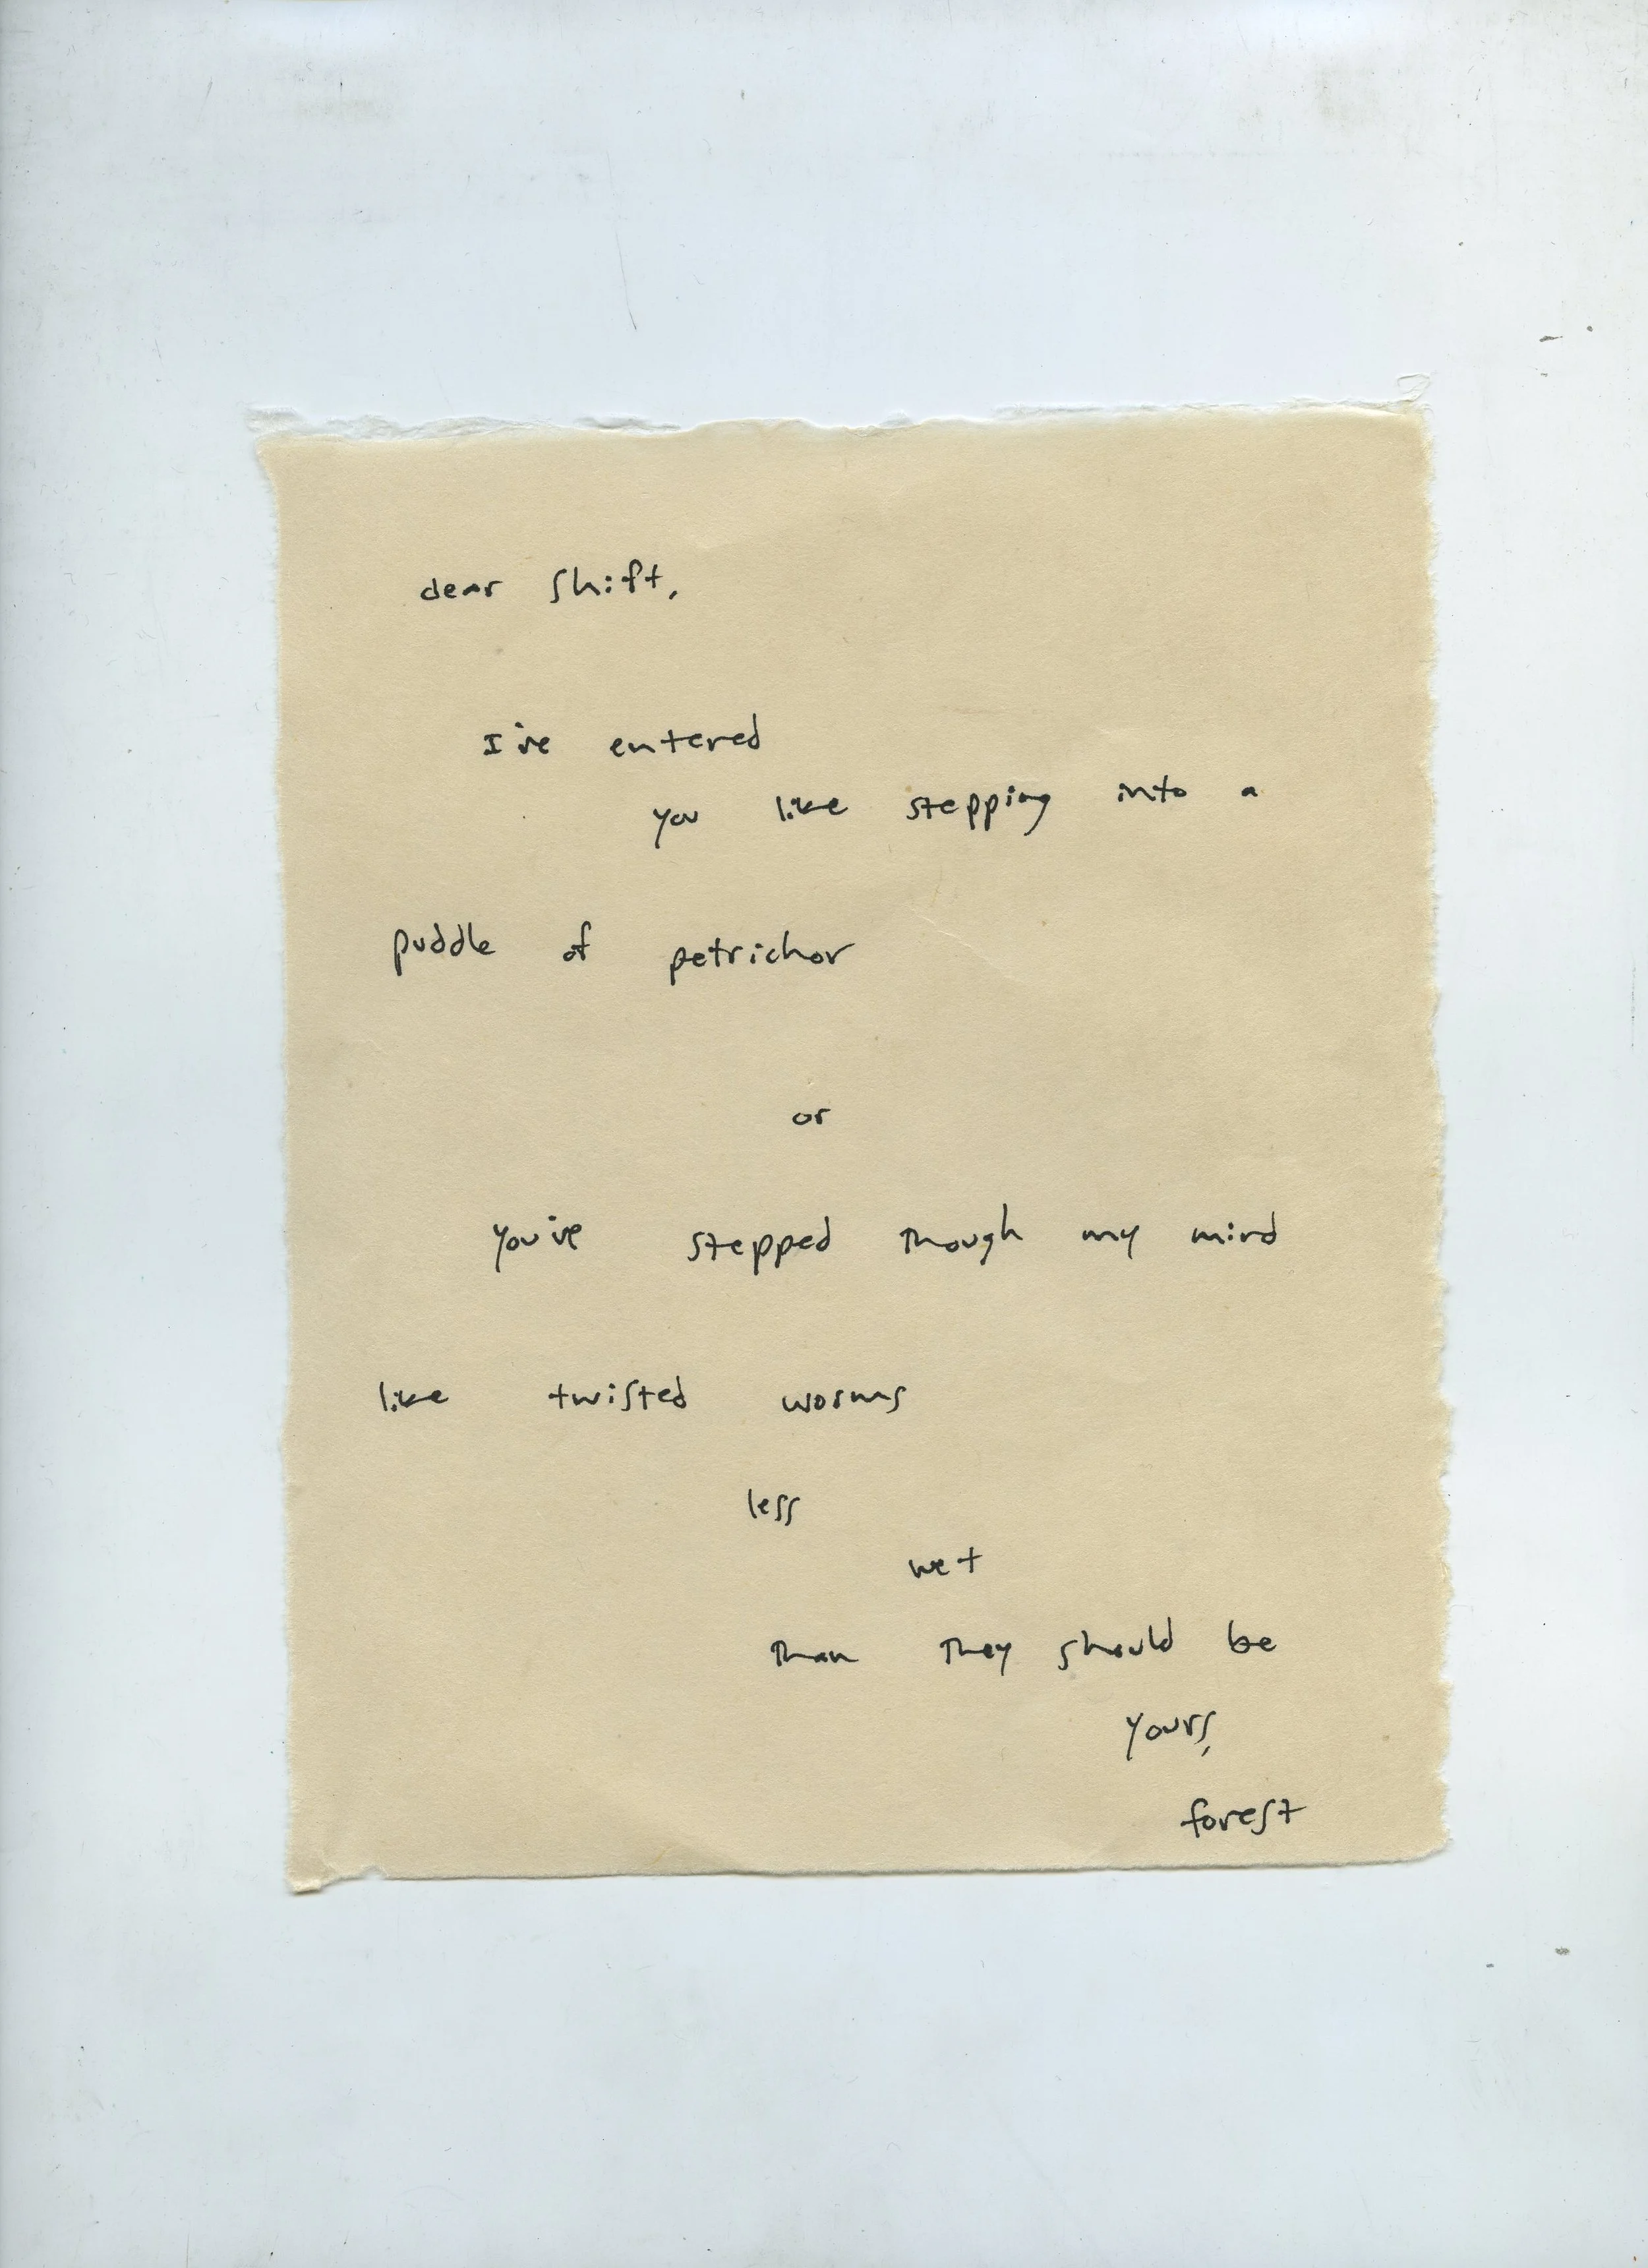 dear shift,
I've entered
you like stepping into a
puddle of petrichor
or
you've stepped though my mind
like twisted worms
less
wet
than they should be
yours,
forest